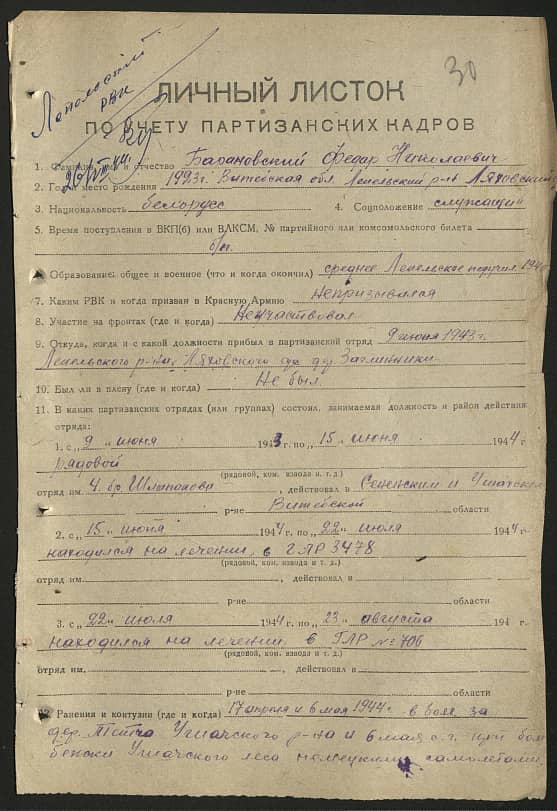 30
Лепельский
РВК
ЛИЧНЫЙ ЛИСТОК
ПО УЧЕТУ ПАРТИЗАНСКИХ КАДРОВ
1. Фамилия, имя и отчество Барановский Федар Николаевич
2. Год и место рождения 1923г. Витебская обл. Лепельский р-нь Ляховский
3. Национальность белорусс 4. Соцположение служащий
5. Время поступления в ВКП(б) или ВЛКСМ, № партийного или комсомольского билета
б/п.
6. Образование: общее и военное (что и когда окончил) среднее Лепельское педучил. 194
7. Каким РВК и когда призван в Красную Армию Непризывался
8. Участие на фронтах (где и когда) Неучаствовал
9. Откуда, когда и с какой должности прибыл в партизанский отряд 9 июня 1943 г.
Лепельского р-на, Ляховского с/с дер.
10. Был ли в плену (где и когда) Не был.
11. В каких партизанских отрядах (или группах) состоял, занимаемая должность и район действия
отряда:
1. с „ 9 „ июня 1943 г. по „ 15 „ июня 1944 г.
рядовой
(рядовой, ком. взвода и т. д.)
отряд им. 4. бр. Шлапакова, действовал в Сененским и Ушачском
р-не Витебской области
2. с „ 15 „ июня 1944 г. по „ 22 „ июля 1944 г.
находился на лечении, в ГЛР 3478
(рядовой, ком. взвода и т. д.)
отряд им. , действовал в
р-не области
3. с „ 22 „ июля 1944 г. по „ 23 „ августа 194 г.
находился на лечении в ГЛР №706
(рядовой, ком. взвода и т. д.)
отряд им. , действовал в
р-не области
12. Ранения и контузии (где и когда) 17 апреля и 6 мая 1944 г. в боях за
дер. Тетча Ушачского р-на и 6 мая с.г. при бом
бежки Ушачского леса немецкими самолетами